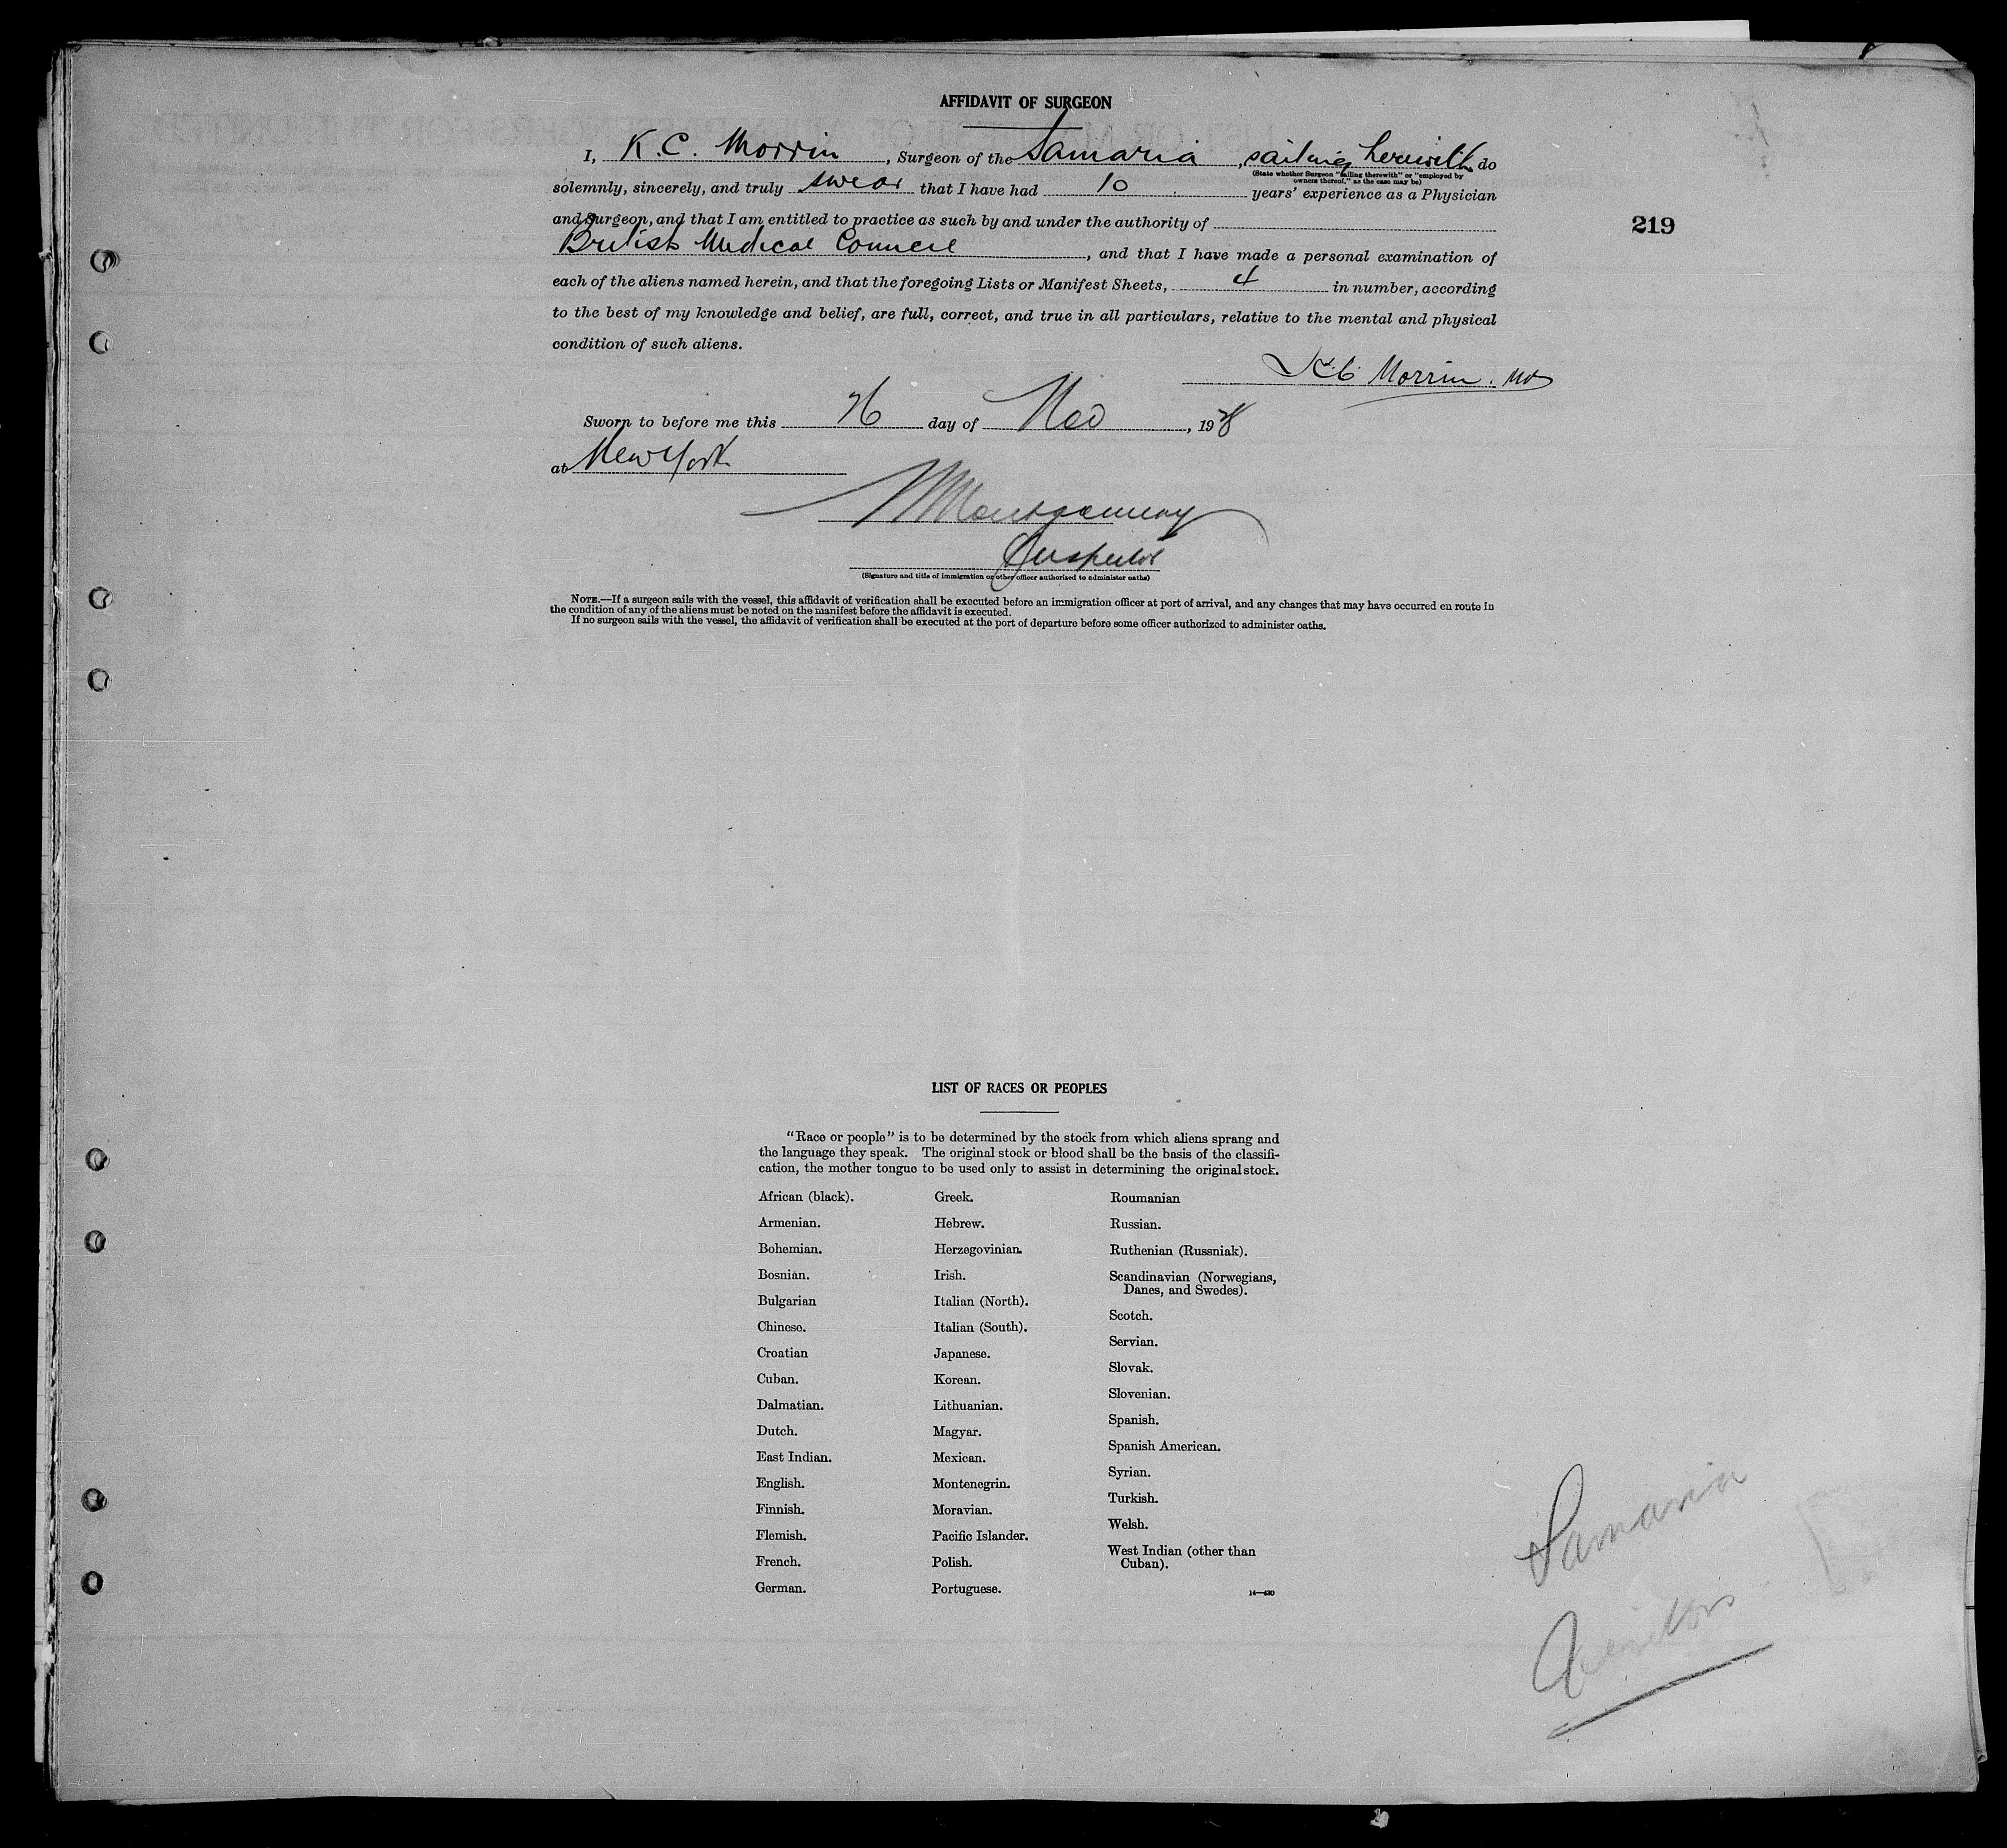 AFFIDAVIT OF SURGEON
I, K.C. Morrin, Surgeon of the Samaria, sailing herewith do
(State whether Surgeon "sailing therewith" or "employed by
owners thereof," as the case may be)
solemnly, sincerely, and truly swear that I have had 10 years' experience as a Physician
and Surgeon, and that I am entitled to practice as such by and under the authority of
British Medical Council, and that I have made a personal examination of
219
each of the aliens named herein, and that the foregoing Lists or Manifest Sheets, 4 in number, according
to the best of my knowledge and belief, are full, correct, and true in all particulars, relative to the mental and physical
condition of such aliens.
K.C. Morrin. MD
Sworn to before me this 26 day of Nov, 1928
at New York
Montgomery
Inspector
(Signature and title of immigration or other officer authorized to administer oaths)
NOTE.—If a surgeon sails with the vessel, this affidavit of verification shall be executed before an immigration officer at port of arrival, and any changes that may have occurred en route in
the condition of any of the aliens must be noted on the manifest before the affidavit is executed.
If no surgeon sails with the vessel, the affidavit of verification shall be executed at the port of departure before some officer authorized to administer oaths.
LIST OF RACES OR PEOPLES
"Race or people" is to be determined by the stock from which aliens sprang and
the language they speak. The original stock or blood shall be the basis of the classifi-
cation, the mother tongue to be used only to assist in determining the original stock.
African (black).
Armenian.
Bohemian.
Bosnian.
Bulgarian
Chinese.
Croatian
Cuban.
Dalmatian.
Dutch.
East Indian.
English.
Finnish.
Flemish.
French.
German.
Greek.
Hebrew.
Herzegovinian.
Irish.
Italian (North).
Italian (South).
Japanese.
Korean.
Lithuanian.
Magyar.
Mexican.
Montenegrin.
Moravian.
Pacific Islander.
Polish.
Portuguese.
Roumanian
Russian.
Ruthenian (Russniak).
Scandinavian (Norwegians,
Danes, and Swedes).
Scotch.
Servian.
Slovak.
Slovenian.
Spanish.
Spanish American.
Syrian.
Turkish.
Welsh.
West Indian (other than
Cuban).
14—430
Samaria